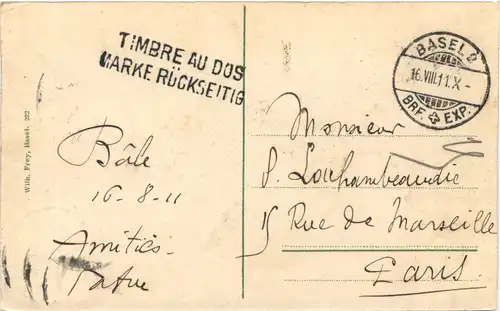 TIMBRE AU DOS
MARKE RÜCKSEITIG
BASEL 2
16.VIII.11.X-
BRF. EXP.
Wilh. Frey, Basel. 202
Bâle
16-8-11
Amitiés
Monsieur
15 Rue de Marseille
Paris